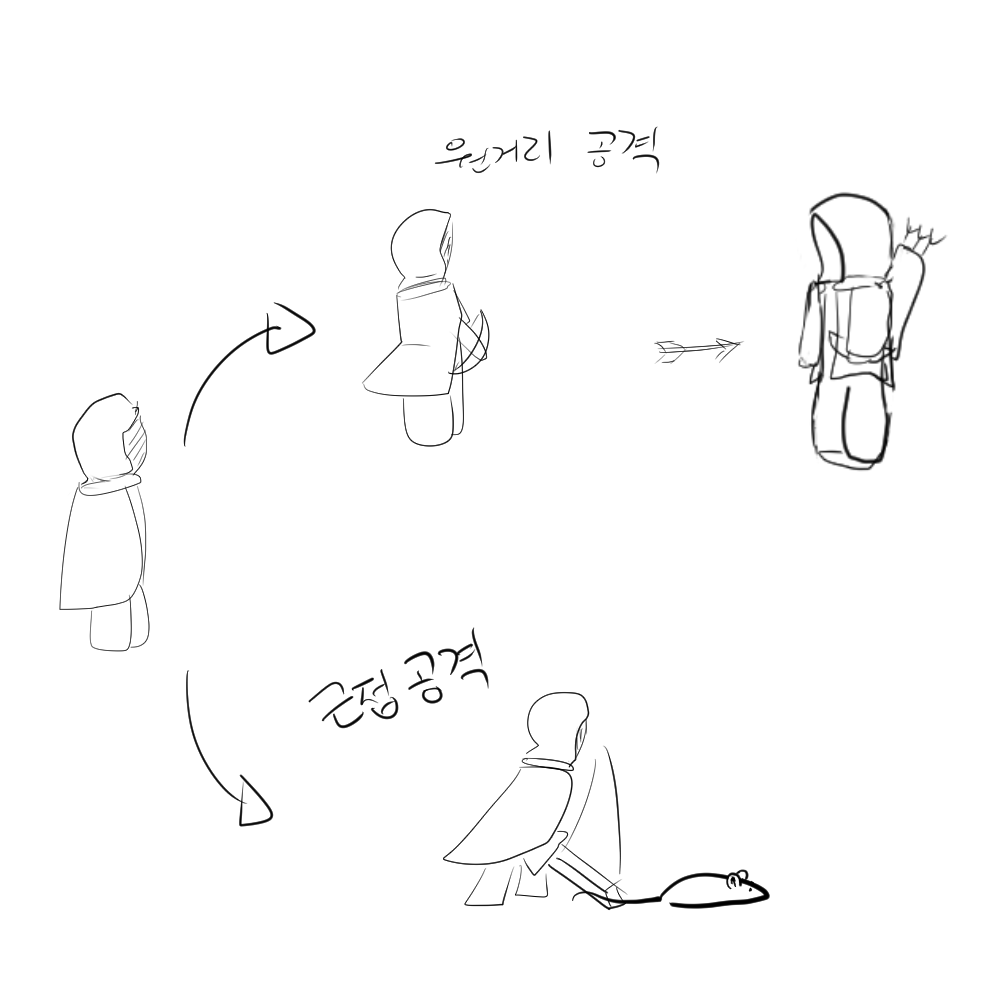 원거리 공격
근접 공격